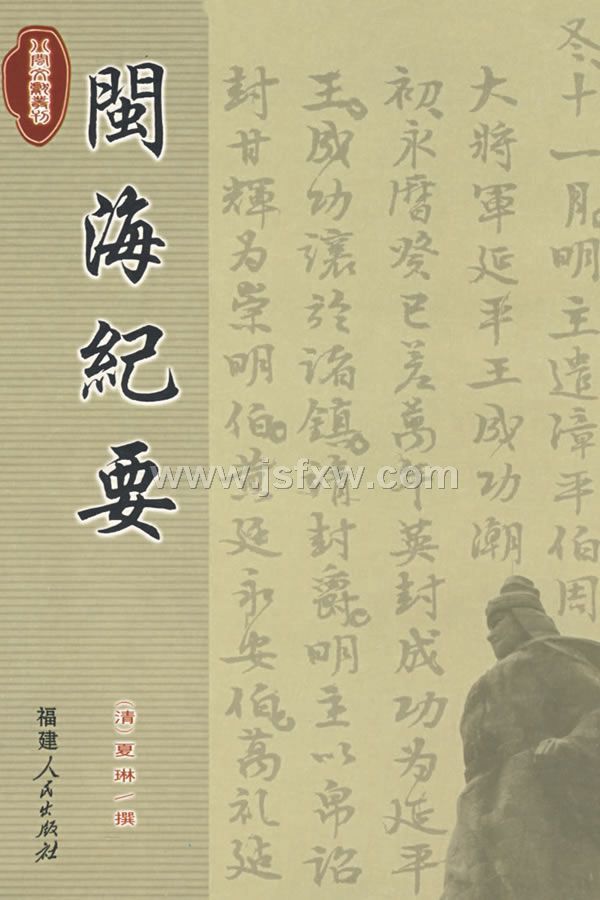 閩海紀要
(清)夏琳/撰
福建人民出版社
冬十一月明主遣漳平伯周
大將軍延平王成功潮
初永曆癸巳差萬年英封成功為延平
王成功讓於諸鎮請封爵明主以帛詔
封甘輝為崇明伯黃廷永安伯萬礼延
www.jsfxw.com